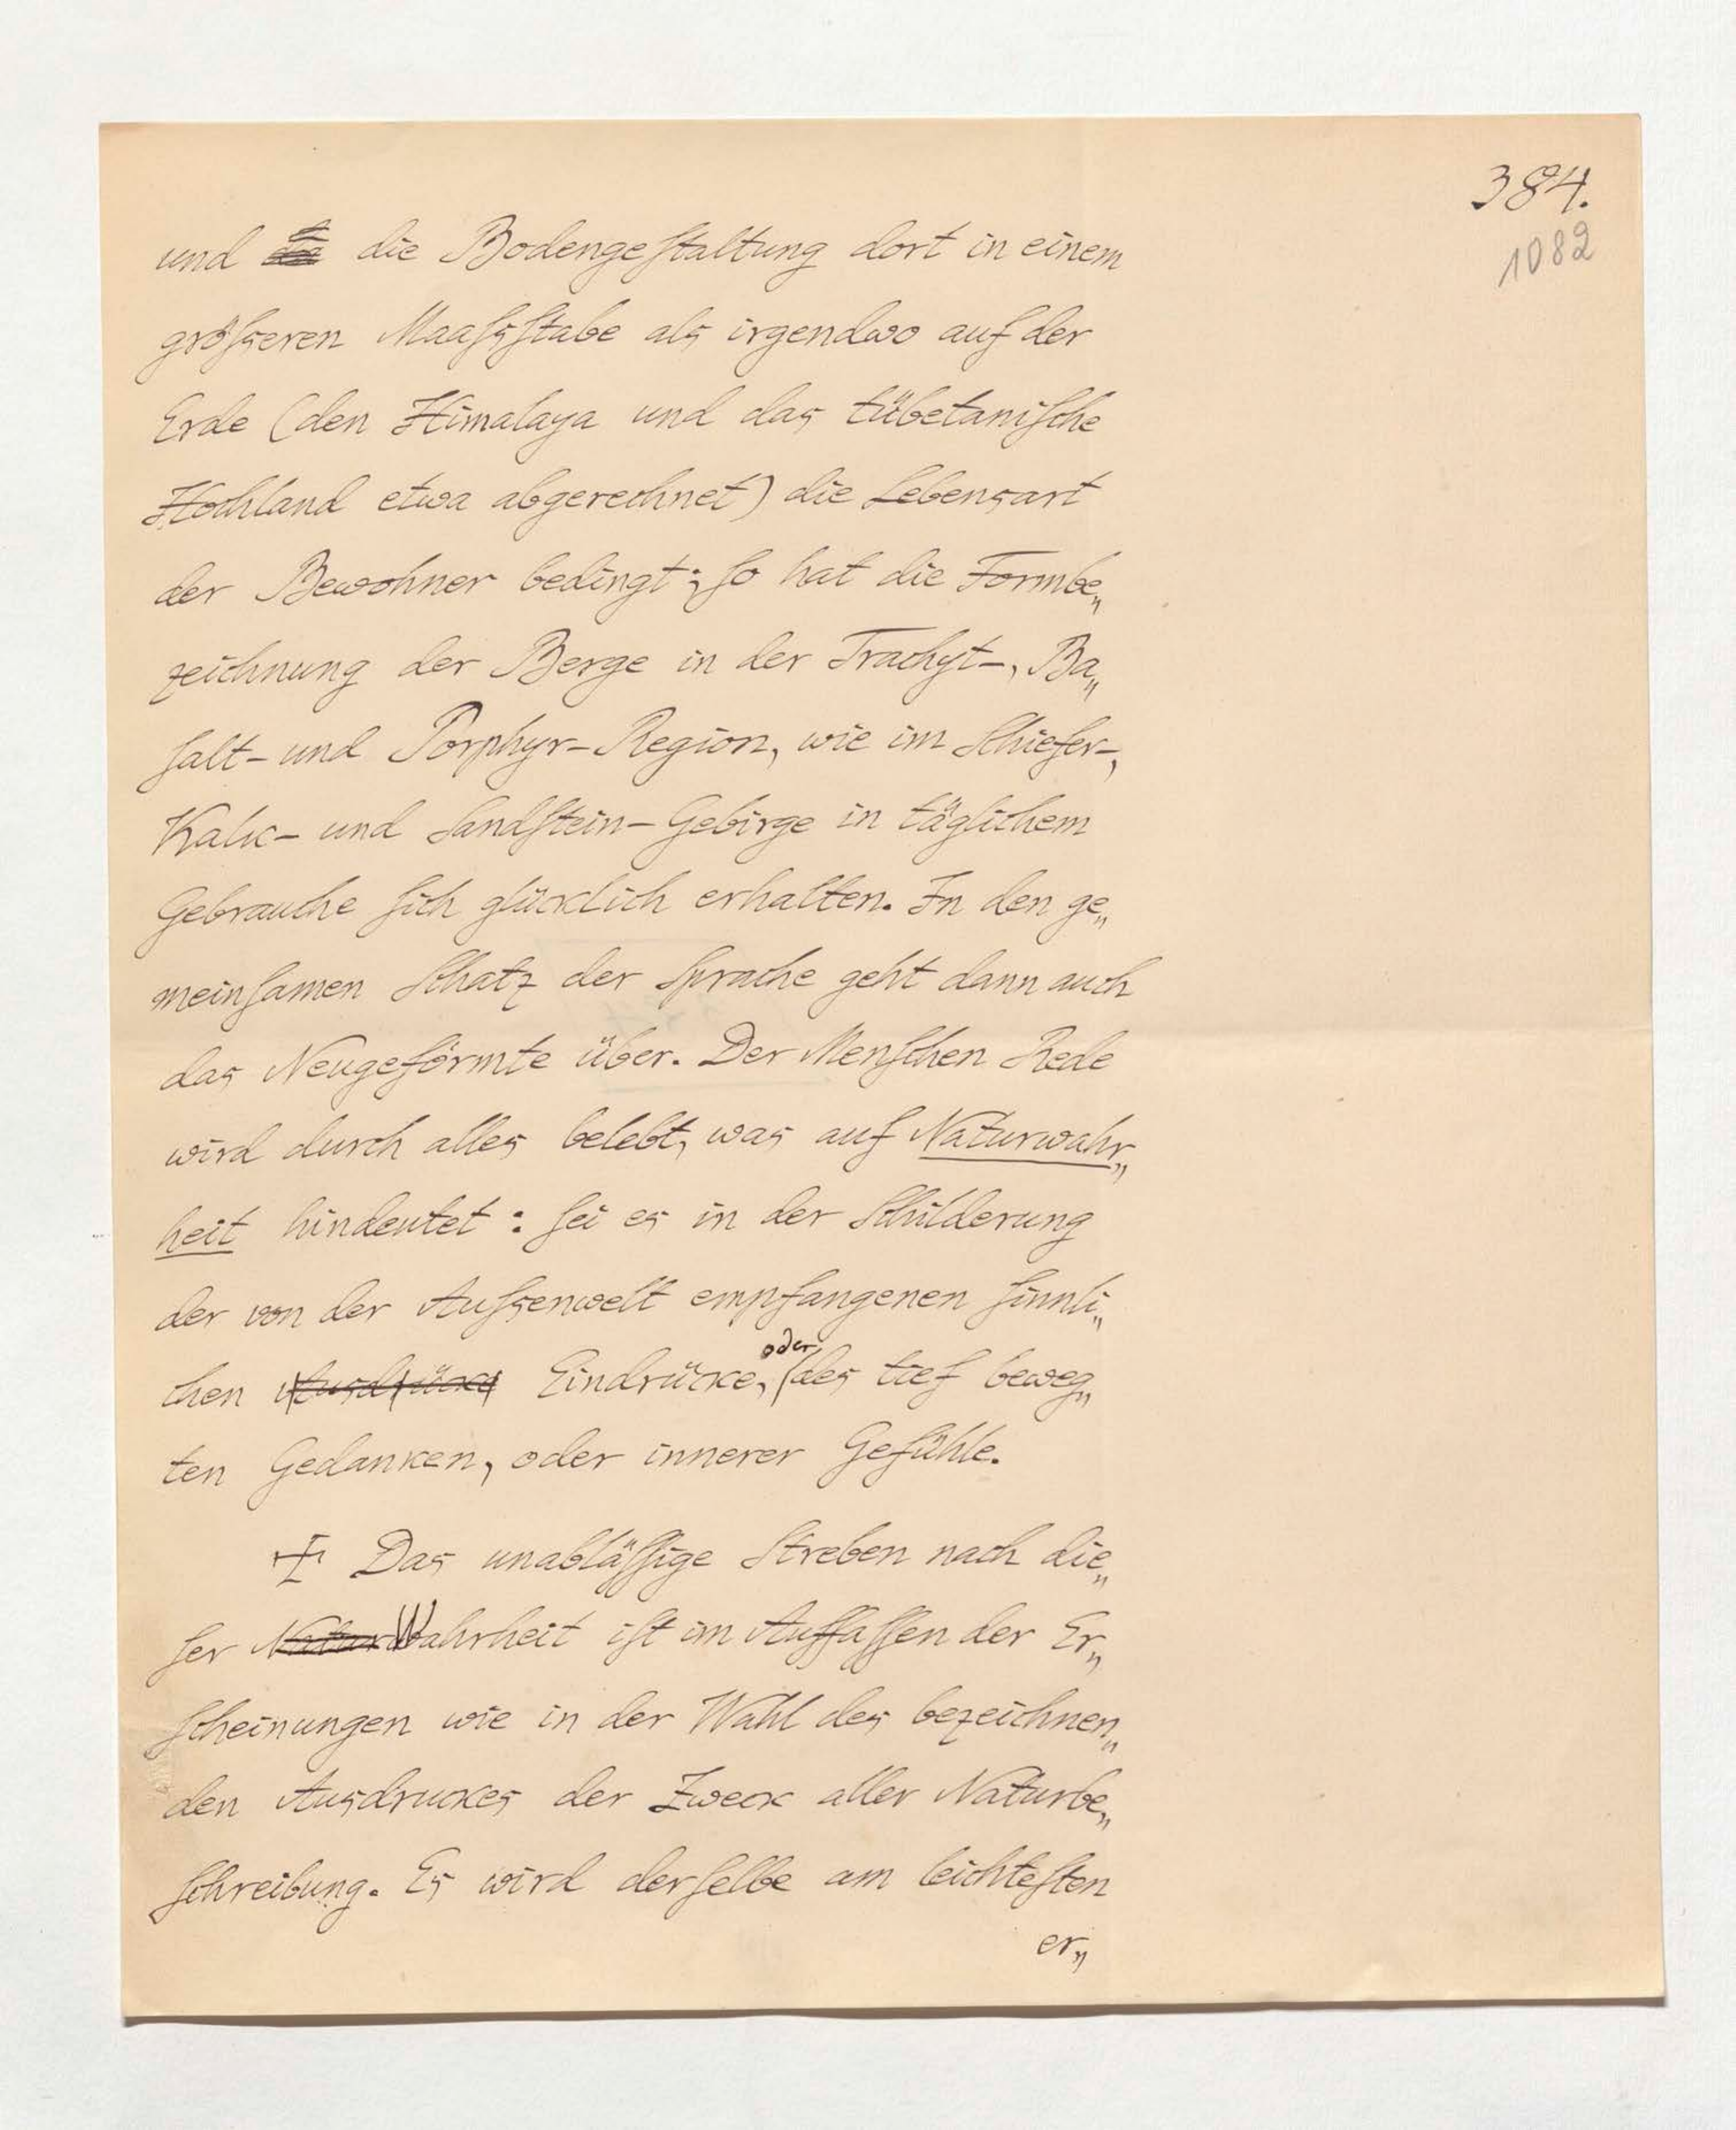 384.
1082
und die die Bodengeſtaltung dort in einem
gröſseren Maaſsſtabe als irgendwo auf der
Erde (den Himalaya und das tübetaniſche
Hochland etwa abgerechnet) die Lebensart
der Bewohner bedingt; ſo hat die Formbe„
zeichnung der Berge in der Trachyt-, Ba„
ſalt- und Porphyr-Region, wie im Schiefer-,
Kalk- und Sandſtein-Gebirge in täglichem
Gebrauche ſich glücklich erhalten. In den ge„
meinſamen Schatz der Sprache geht dann auch
das Neugeförmte über. Der Menſchen Rede
wird durch alles belebt, was auf Naturwahr„
heit hindeutet: ſei es in der Schilderung
der von der Auſsenwelt empfangenen ſinnli„
oder
chen Ausdrücke Eindrücke, des tief beweg„
ten Gedanken, oder innerer Gefühle.
Das unabläſſige Streben nach die„
ſer NaturWahrheit iſt im Auffaſſen der Er„
ſcheinungen wie in der Wahl des bezeichnen„
den Ausdruckes der Zweck aller Naturbe„
ſchreibung. Es wird derſelbe am leichteſten
er„